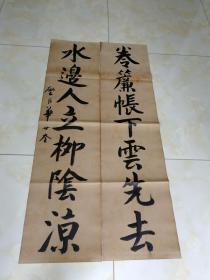 卷簾帳下雲先去
水邊人立柳陰涼